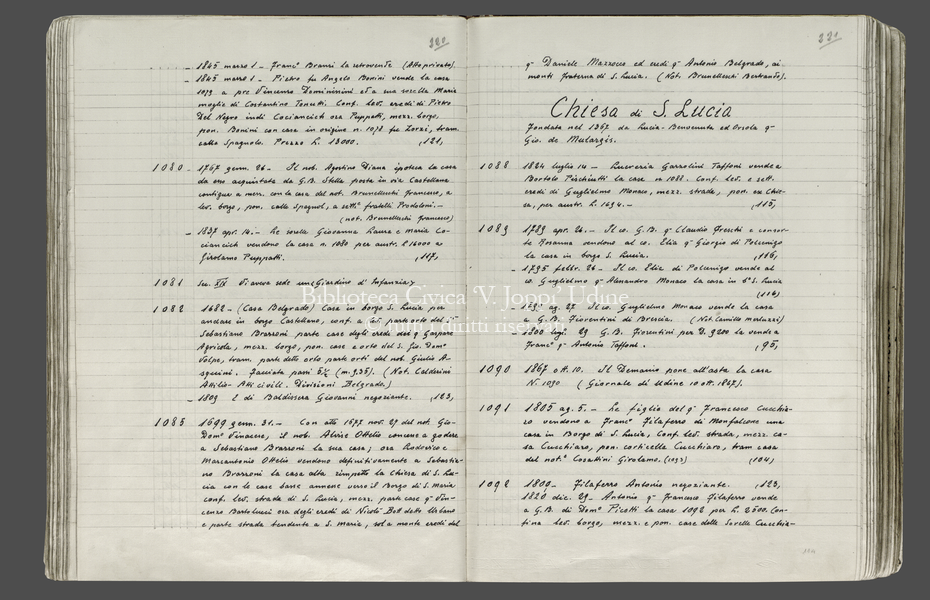 330
- 1845 marzo 1 - Franc° Braussi la retrovende (Atto privato).
- 1845 marzo 1 - Pietro fu Angelo Bonini vende la casa
1079 a pre Vincenzo Daminissini et a sua sorella Maria
moglie di Costantino Tonutti. Conf. lev. eredi di Pietro
Del Negro indi Cociancich ora Puppatti, mezz. borgo,
pon. Bonini con casa in origine n. 1078 fu Zorzi, tram.
calle Spagnol. Prezzo L. 13000. (121)
1080 - 1767 genn. 26 - Il nob. Agostino Diana ipoteca la casa
da esso acquistata da G.B. Stella posta in via Castellana
contigua a mezz. con la casa del not. Brunelleschi Francesco, a
lev. borgo, pon. calle Spagnol, a sett. fratelli Prodoloni. -
(not. Brunelleschi Francesco)
- 1837 apr. 14 - Le sorelle Giovanna Laura e Maria Co-
ciancich vendono la casa n. 1080 per austr. L 16000 a
Girolamo Puppatti. (117)
1081 Sec. XIX Vi aveva sede un (Giardino d'Infanzia)
1082 1682 - (Casa Belgrado) Casa in borgo S. Lucia per
andare in borgo Castellano, conf. a lev. parte orto del q.
Sebastiano Brazzoni parte case degli eredi del q. Gaspare
Agricola, mezz. borgo, pon. case e orto del S. Gio. Dom°
Volpe, tram. parte detto orto parte orti del nob. Giulio A-
squini. Facciata passi 5½ (m. 9,35). (Not. Calderini
Attilio - Atti civili. Divisioni Belgrado.)
- 1809 È di Baldissera Giovanni negoziante. (123)
1085 1699 genn. 31 - Con atto 1677 nov. 27 del not. Gio-
Dom° Vinacese, il nob. Alvise Ottelio concesse a godere
a Sebastiano Brazzoni la sua casa; ora Lodovico e
Marcantonio Ottelio vendono definitivamente a Sebastia-
no Brazzoni la casa alta rimpetto la Chiesa di S. Lu-
cia con le case basse annesse verso il Borgo di S. Maria
conf. lev. strada di S. Lucia, mezz. parte case q. Vin-
cenzo Bartolucci ora degli eredi di Nicolò Bott detto Urbano
e parte strada tendente a S. Maria, sol a monte eredi del
331
q. Daniele Mazzocco ed eredi q. Antonio Belgrado, ai
monti fraterna di S. Lucia. (Not. Brunelleschi Bertrando).
Chiesa di S. Lucia
Fondata nel 1367 da Lucia - Benvenuta ed Orsola q.
Gio. de Mulargis.
1088 1824 luglio 14 - Lucrezia Gazzolini Taffoni vende a
Bortolo Pischiutti la casa n. 1088. Conf. lev. e sett.
eredi di Guglielmo Monaco, mezz. strada, pon. ex Chie-
sa, per austr. L. 1694. - (115)
1089 1789 apr. 26 - Il co. G.B. q. Claudio Freschi e consor-
te Rosanna vendono al co. Elia q. Giorgio di Polcenigo
la casa in borgo S. Lucia. (116)
- 1795 febbr. 26 - Il co. Elia di Polcenigo vende al
co. Guglielmo q. Alessandro Monaco la casa in d° S. Lucia
(116)
ag. 27 Il co. Guglielmo Monaco vende la casa
a G.B. Fiorentini di Brescia. (Not. Camillo Marluzzi)
- 1800 lugl. 29 G.B. Fiorentini per D. 9200 la vende a
Franc° q. Antonio Taffoni. (95)
1090 1867 ott. 10. Il Demanio pone all'asta la casa
N. 1090 (Giornale di Udine 10 ott. 1867).
1091 1805 ag. 5. - Le figlie del q. Francesco Cucchia-
ro vendono a Franc° Filaferro di Monfalcone una
casa in Borgo di S. Lucia, Conf. lev. strada, mezz. ca-
sa Cucchiaro, pon. corticella Cucchiaro, tram. casa
del not. Cosattini Girolamo. (1092) (104)
1092 1809 - Filaferro Antonio negoziante. (123)
1820 dic. 29 - Antonio q. Francesco Filaferro vende
a G.B. di Dom° Picotti la casa 1092 per L. 2500. Con-
fina lev. borgo, mezz. e pon. case delle Sorelle Cucchia-
Biblioteca Civica "V. Joppi" Udine
© tutti i diritti riservati